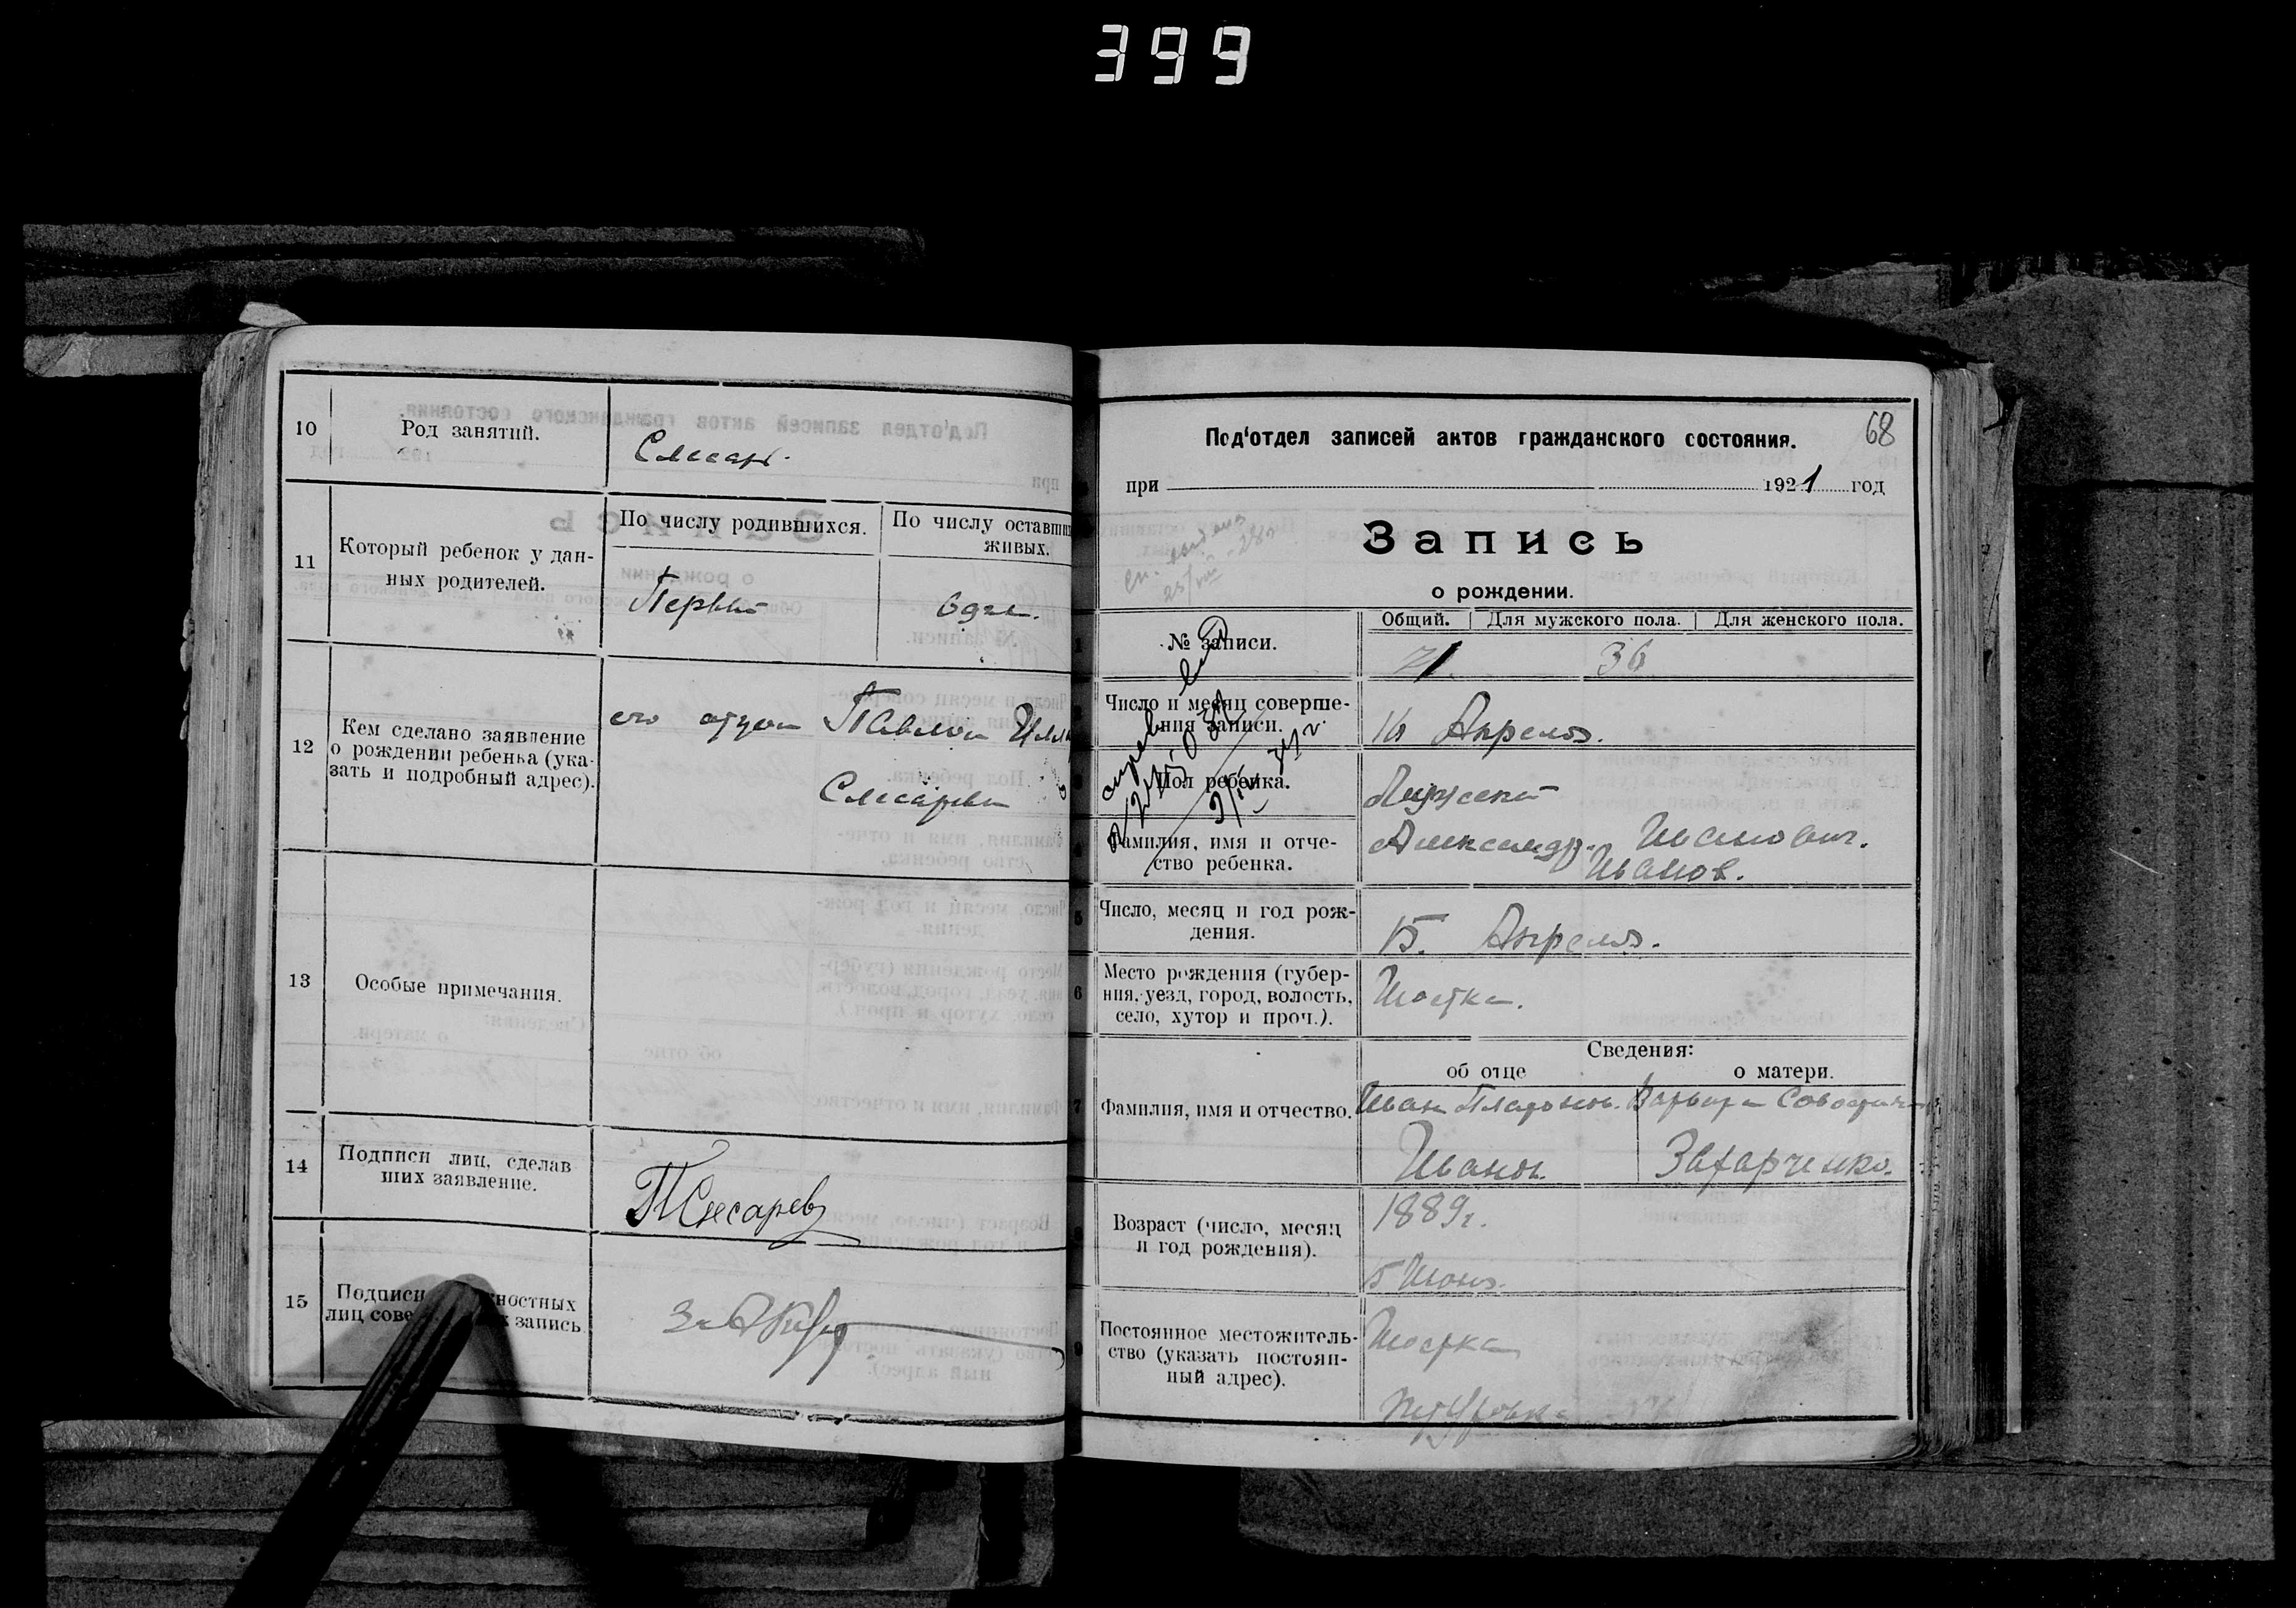 399
10
Род занятий.
Слесарь.
11
Который ребенок у дан-
ных родителей.
По числу родившихся.
По числу оставших
живых.
Первый
один.
12
Кем сделано заявление
о рождении ребенка (ука-
зать и подробный адрес).
его отцом Павлом
Слесаревым
13
Особые примечания.
14
Подписи лиц, сделав
ших заявление.
ПСлесарев
15
Подписи ностных
лиц сове х запись.
68
Под'отдел записей актов гражданского состояния.
при 1921 год
Запись
о рождении.
Общий. Для мужского пола. Для женского пола.
№ записи.
71. 36
Число и месяц соверше-
ния записи.
16 Апреля.
Пол ребенка.
Мужской
Фамилия, имя и отче-
ство ребенка.
Александр Иванович.
Иванов.
5
Число, месяц и год рож-
дения.
15. Апреля.
6
Место рождения (губер-
ния, уезд, город, волость,
село, хутор и проч.).
Шостка.
Сведения:
об отце
о матери.
7
Фамилия, имя и отчество.
Иван Платонов. Варвара
Иванов. Захарченко.
Возраст (число, месяц
и год рождения).
1889г.
5 Июня.
9
Постоянное местожитель-
ство (указать постоян-
ный адрес).
Шостка